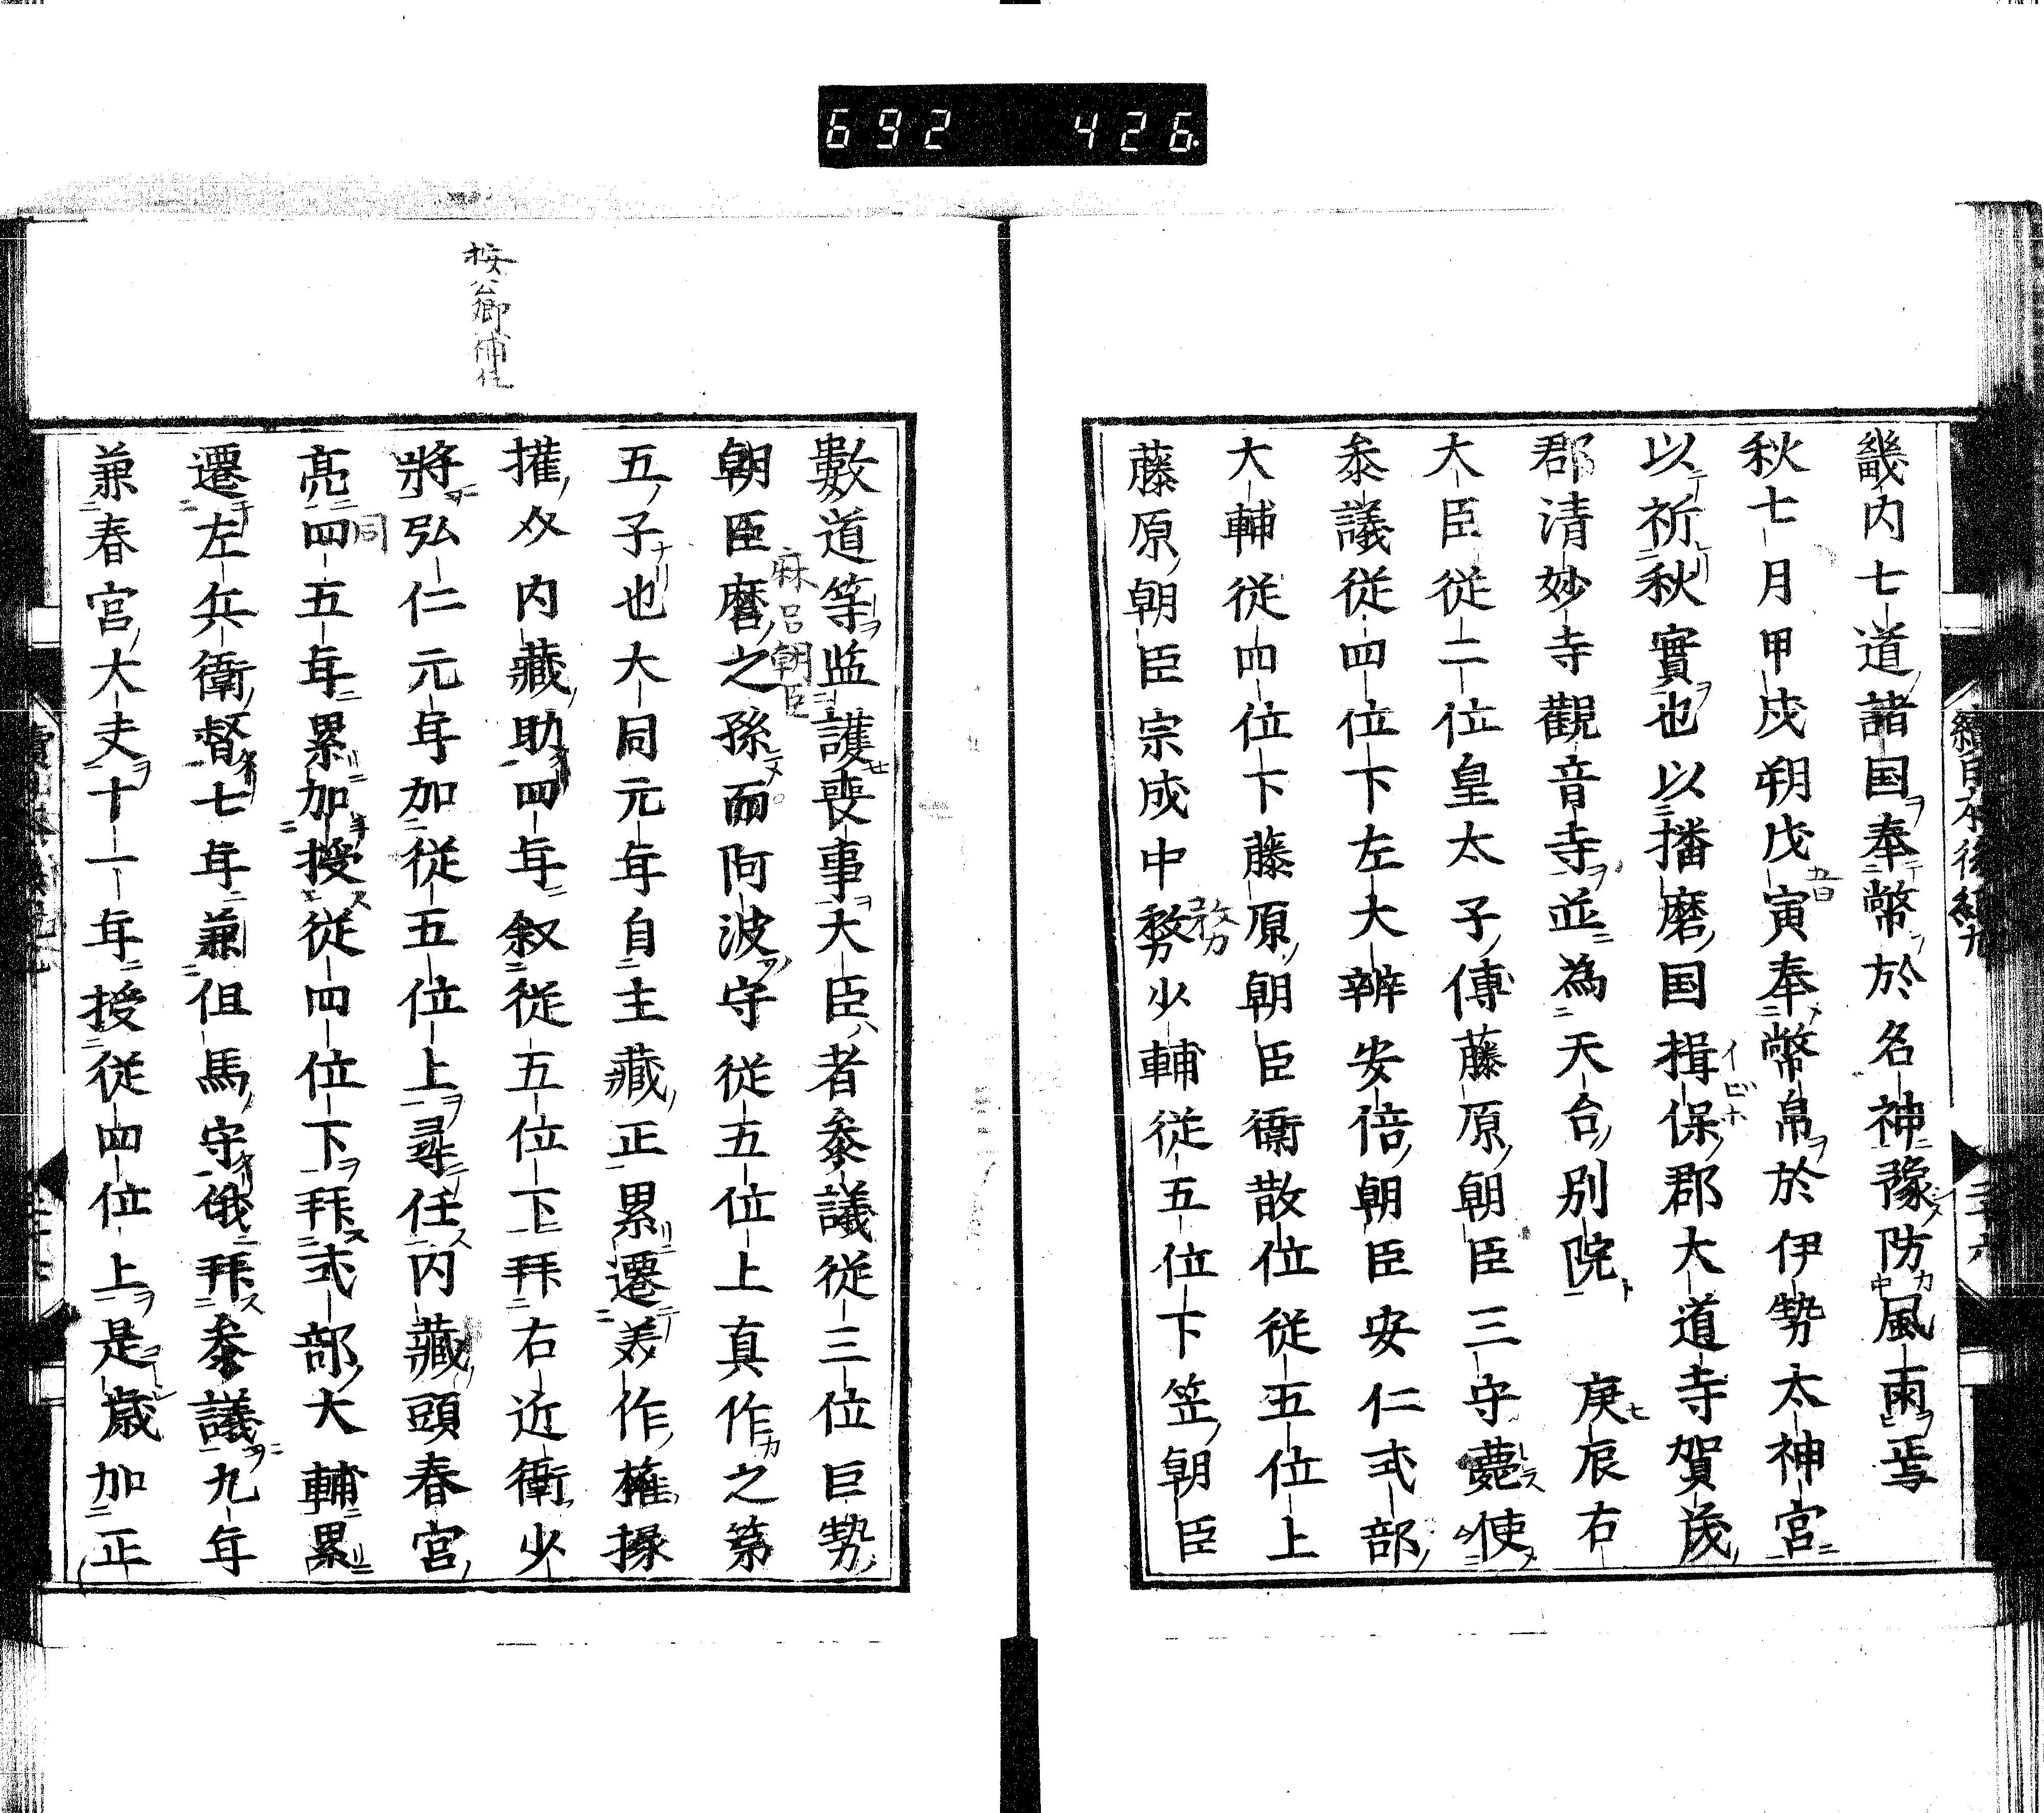 692 426
畿内七道諸国奉幣於名神豫防風雨焉
秋七月甲戌朔戊寅奉幣帛於伊勢太神宮
以祈秋實也以播磨国揖保郡大道寺賀茂
郡清妙寺觀音寺並為天台別院 庚辰右
大臣従二位皇太子傅藤原朝臣三守薨使
叅議従四位下左大辨安倍朝臣安仁式部
大輔従四位下藤原朝臣衞散位従五位上
藤原朝臣宗成中務少輔従五位下笠朝臣
按公卿補任
數道等監護喪事大臣者叅議従三位巨勢
麻呂朝臣
朝臣麿之孫而阿波守従五位上真作之第
五子也大同元年自主藏正累遷美作権掾
擢爲内藏助四年叙従五位下拜右近衛少
將弘仁元年加従五位上尋任内藏頭春宮
同
亮四五年累加授従四位下拜式部大輔累
遷左兵衛督七年兼但馬守俄拜叅議九年
兼春宮大夫十一年授従四位上是歳加正